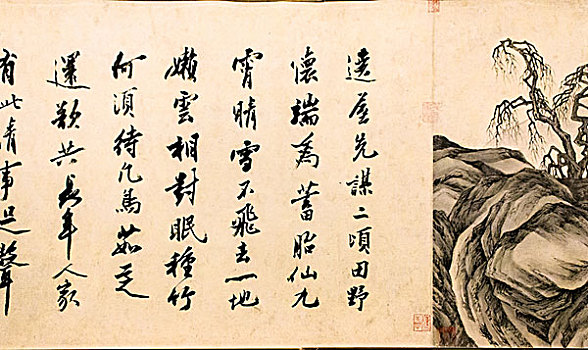 遶屋先謀二頃田野
懷端為蓄胎仙九
霄晴雪不飛去一地
嬾雲相對眠種竹
何須待凡鳥茹芝
還共長年人家
有此清事足